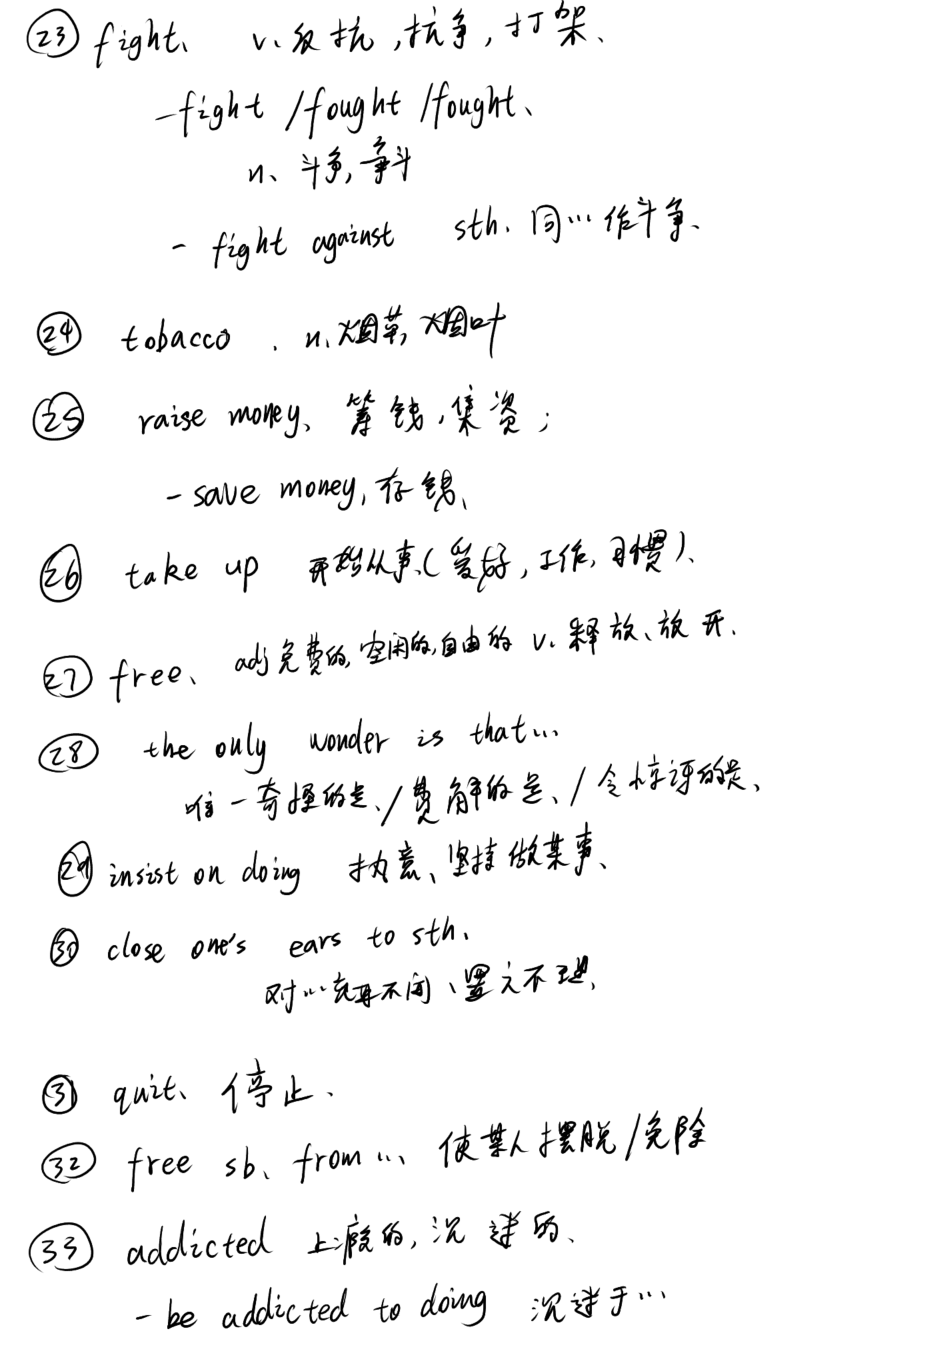 ㉓ fight、 v、反抗,抗争,打架、
- fight /fought /fought、
n、斗争,争斗
- fight against sth、同…作斗争、
㉔ tobacco . n、烟草,烟叶
㉕ raise money、筹钱,集资;
- save money,存钱、
㉖ take up 开始从事、(爱好,工作,习惯)、
㉗ free、 adj 免费的,空闲的,自由的 v、释放、放开.
㉘ the only wonder is that…
唯一奇怪的是、/费解的是、/令惊讶的是、
㉙ insist on doing 执意、坚持做某事、
㉚ close one's ears to sth、
对…充耳不闻、置之不理,
㉛ quit、停止、
㉜ free sb、from … 使某人摆脱/免除
㉝ addicted 上瘾的,沉迷的、
- be addicted to doing 沉迷于…